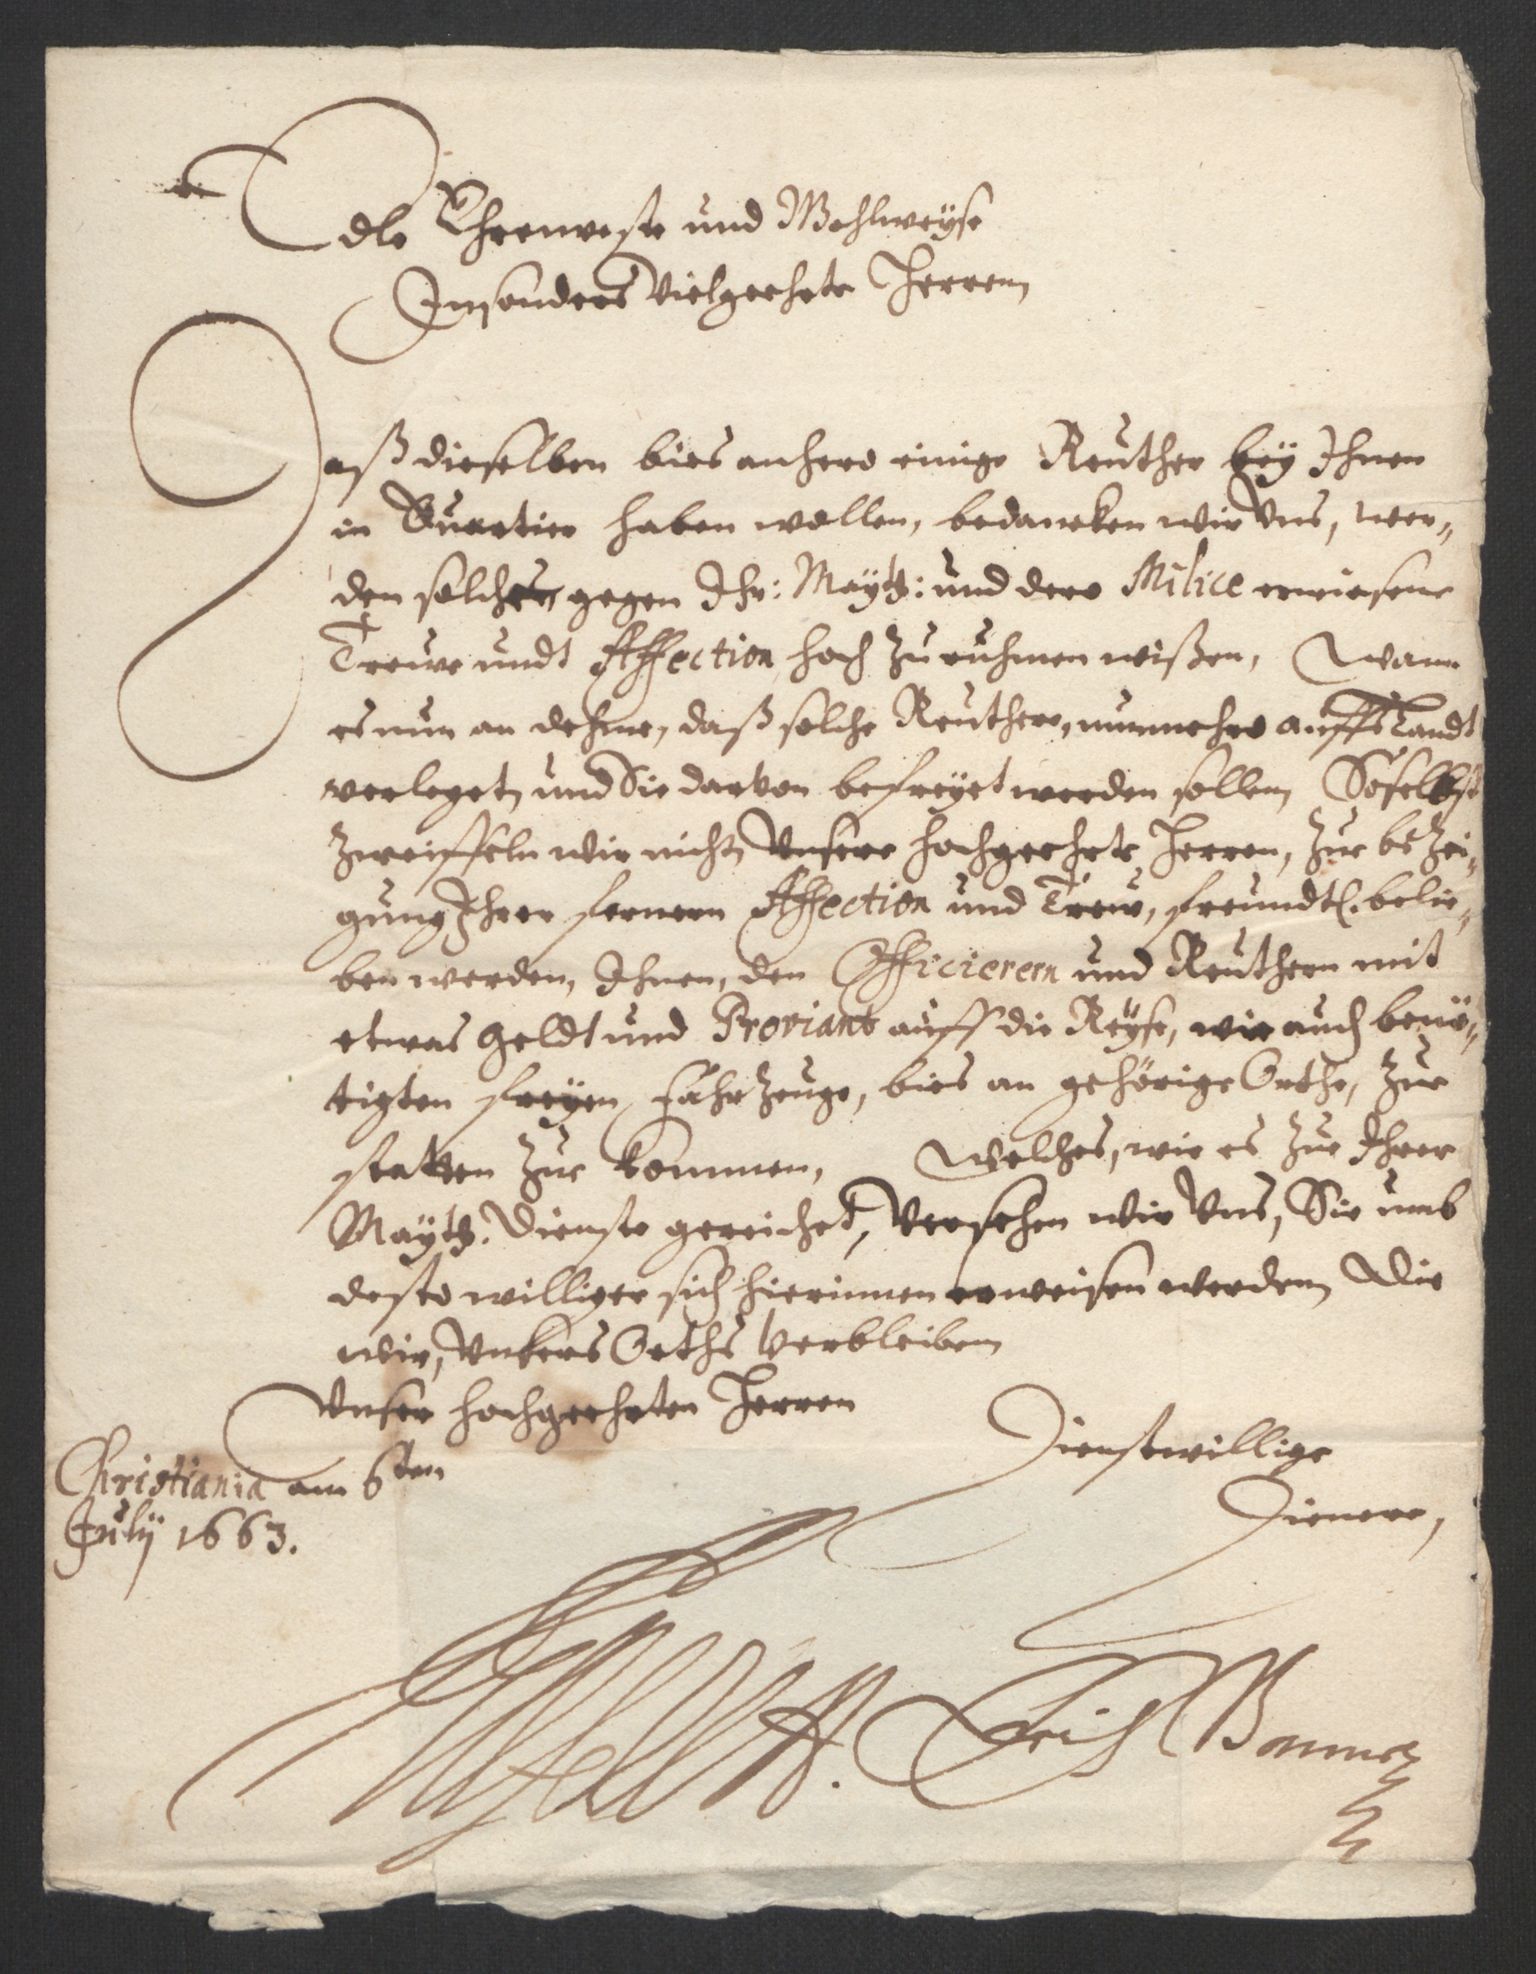 Edle Ehrenveste und Wohlweyse
Insonders Vielgeehrte Herren
Daß dieselben bies anhero einige Reuther bey Ihnen
in Quartier haben wollen, bedancken wir Uns, wer-
den solches, gegen Ihr: Maytt: und dero Milice erwiesene
Treuve undt Affection, hoch zu ruhmen wißen, Wann
es nun an dehme, daß solche Reuthere, nunmehro auffs Landt
verleget, und Sie darvon befreyet werden sollen,
Zweiffeln wir nicht, Unsere hochgeehrte Herren, zur bezei-
gung Ihrer fernern Affection und Treuv, freundtl. belie-
ben werden, Ihnen, den Officierern und Reuthern mit
etwas Geldt und Proviant auff die Reyse, wie auch benö-
tigten freyen fahrzeuge, bies an gehörige Orthe, zur
statten zur kommen, Welches, wie es zur Ihrer
Maytt. Dienste gereichet, Versehen wir Uns, Sie umb
desto williger sich hierinnen erweisen werden, Die
wir, Unsers Orths Verbleiben
Unser hochgeehrten Herren
Dienstwillige
Dienere,
Christiania am 6ten
July 1663.
Erich Banner